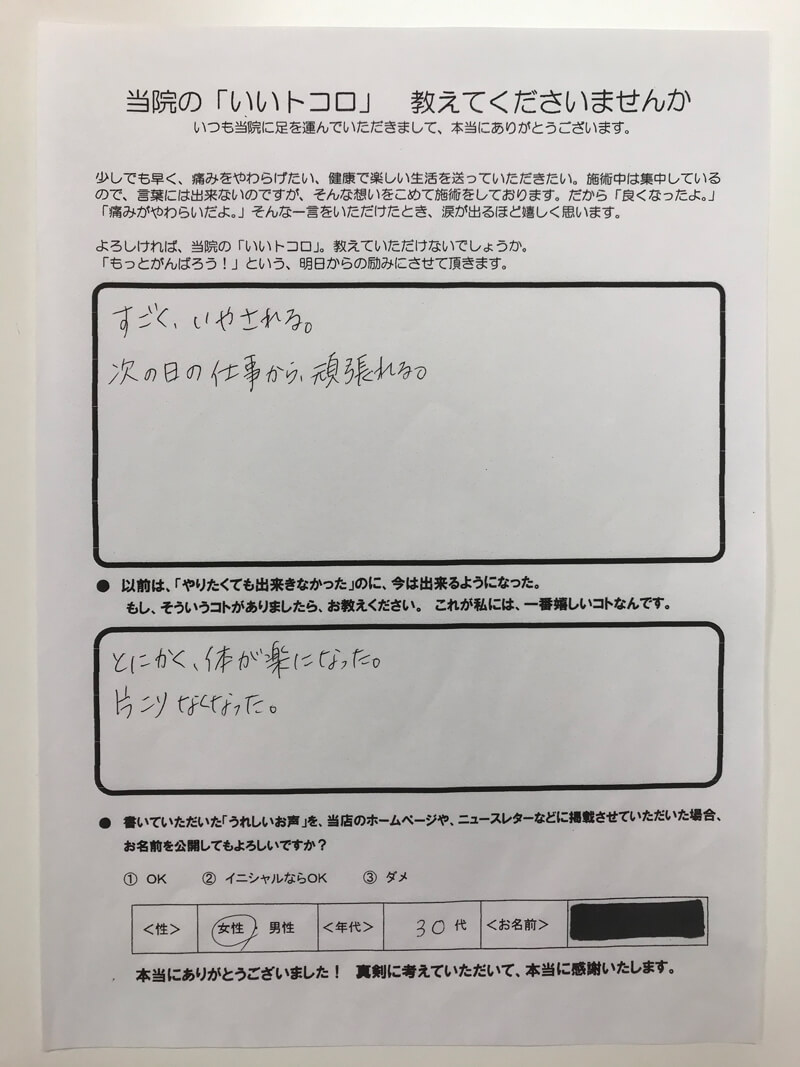 当院の「いいトコロ」　教えてくださいませんか
いつも当院に足を運んでいただきまして、本当にありがとうございます。
少しでも早く、痛みをやわらげたい、健康で楽しい生活を送っていただきたい。施術中は集中している
ので、言葉には出来ないのですが、そんな想いをこめて施術をしております。だから「良くなったよ。」
「痛みがやわらいだよ。」そんな一言をいただけたとき、涙が出るほど嬉しく思います。
よろしければ、当院の「いいトコロ」。教えていただけないでしょうか。
「もっとがんばろう！」という、明日からの励みにさせて頂きます。
すごく、いやされる。
次の日の仕事から、頑張れる。
● 以前は、「やりたくても出来きなかった」のに、今は出来るようになった。
もし、そういうコトがありましたら、お教えください。 これが私には、一番嬉しいコトなんです。
とにかく、体が楽になった。
片コリなくなった。
● 書いていただいた「うれしいお声」を、当店のホームページや、ニュースレターなどに掲載させていただいた場合、
お名前を公開してもよろしいですか？
① OK　② イニシャルならOK　③ ダメ
＜性＞ 女性・男性 ＜年代＞ 30代 ＜お名前＞
本当にありがとうございました！ 真剣に考えていただいて、本当に感謝いたします。